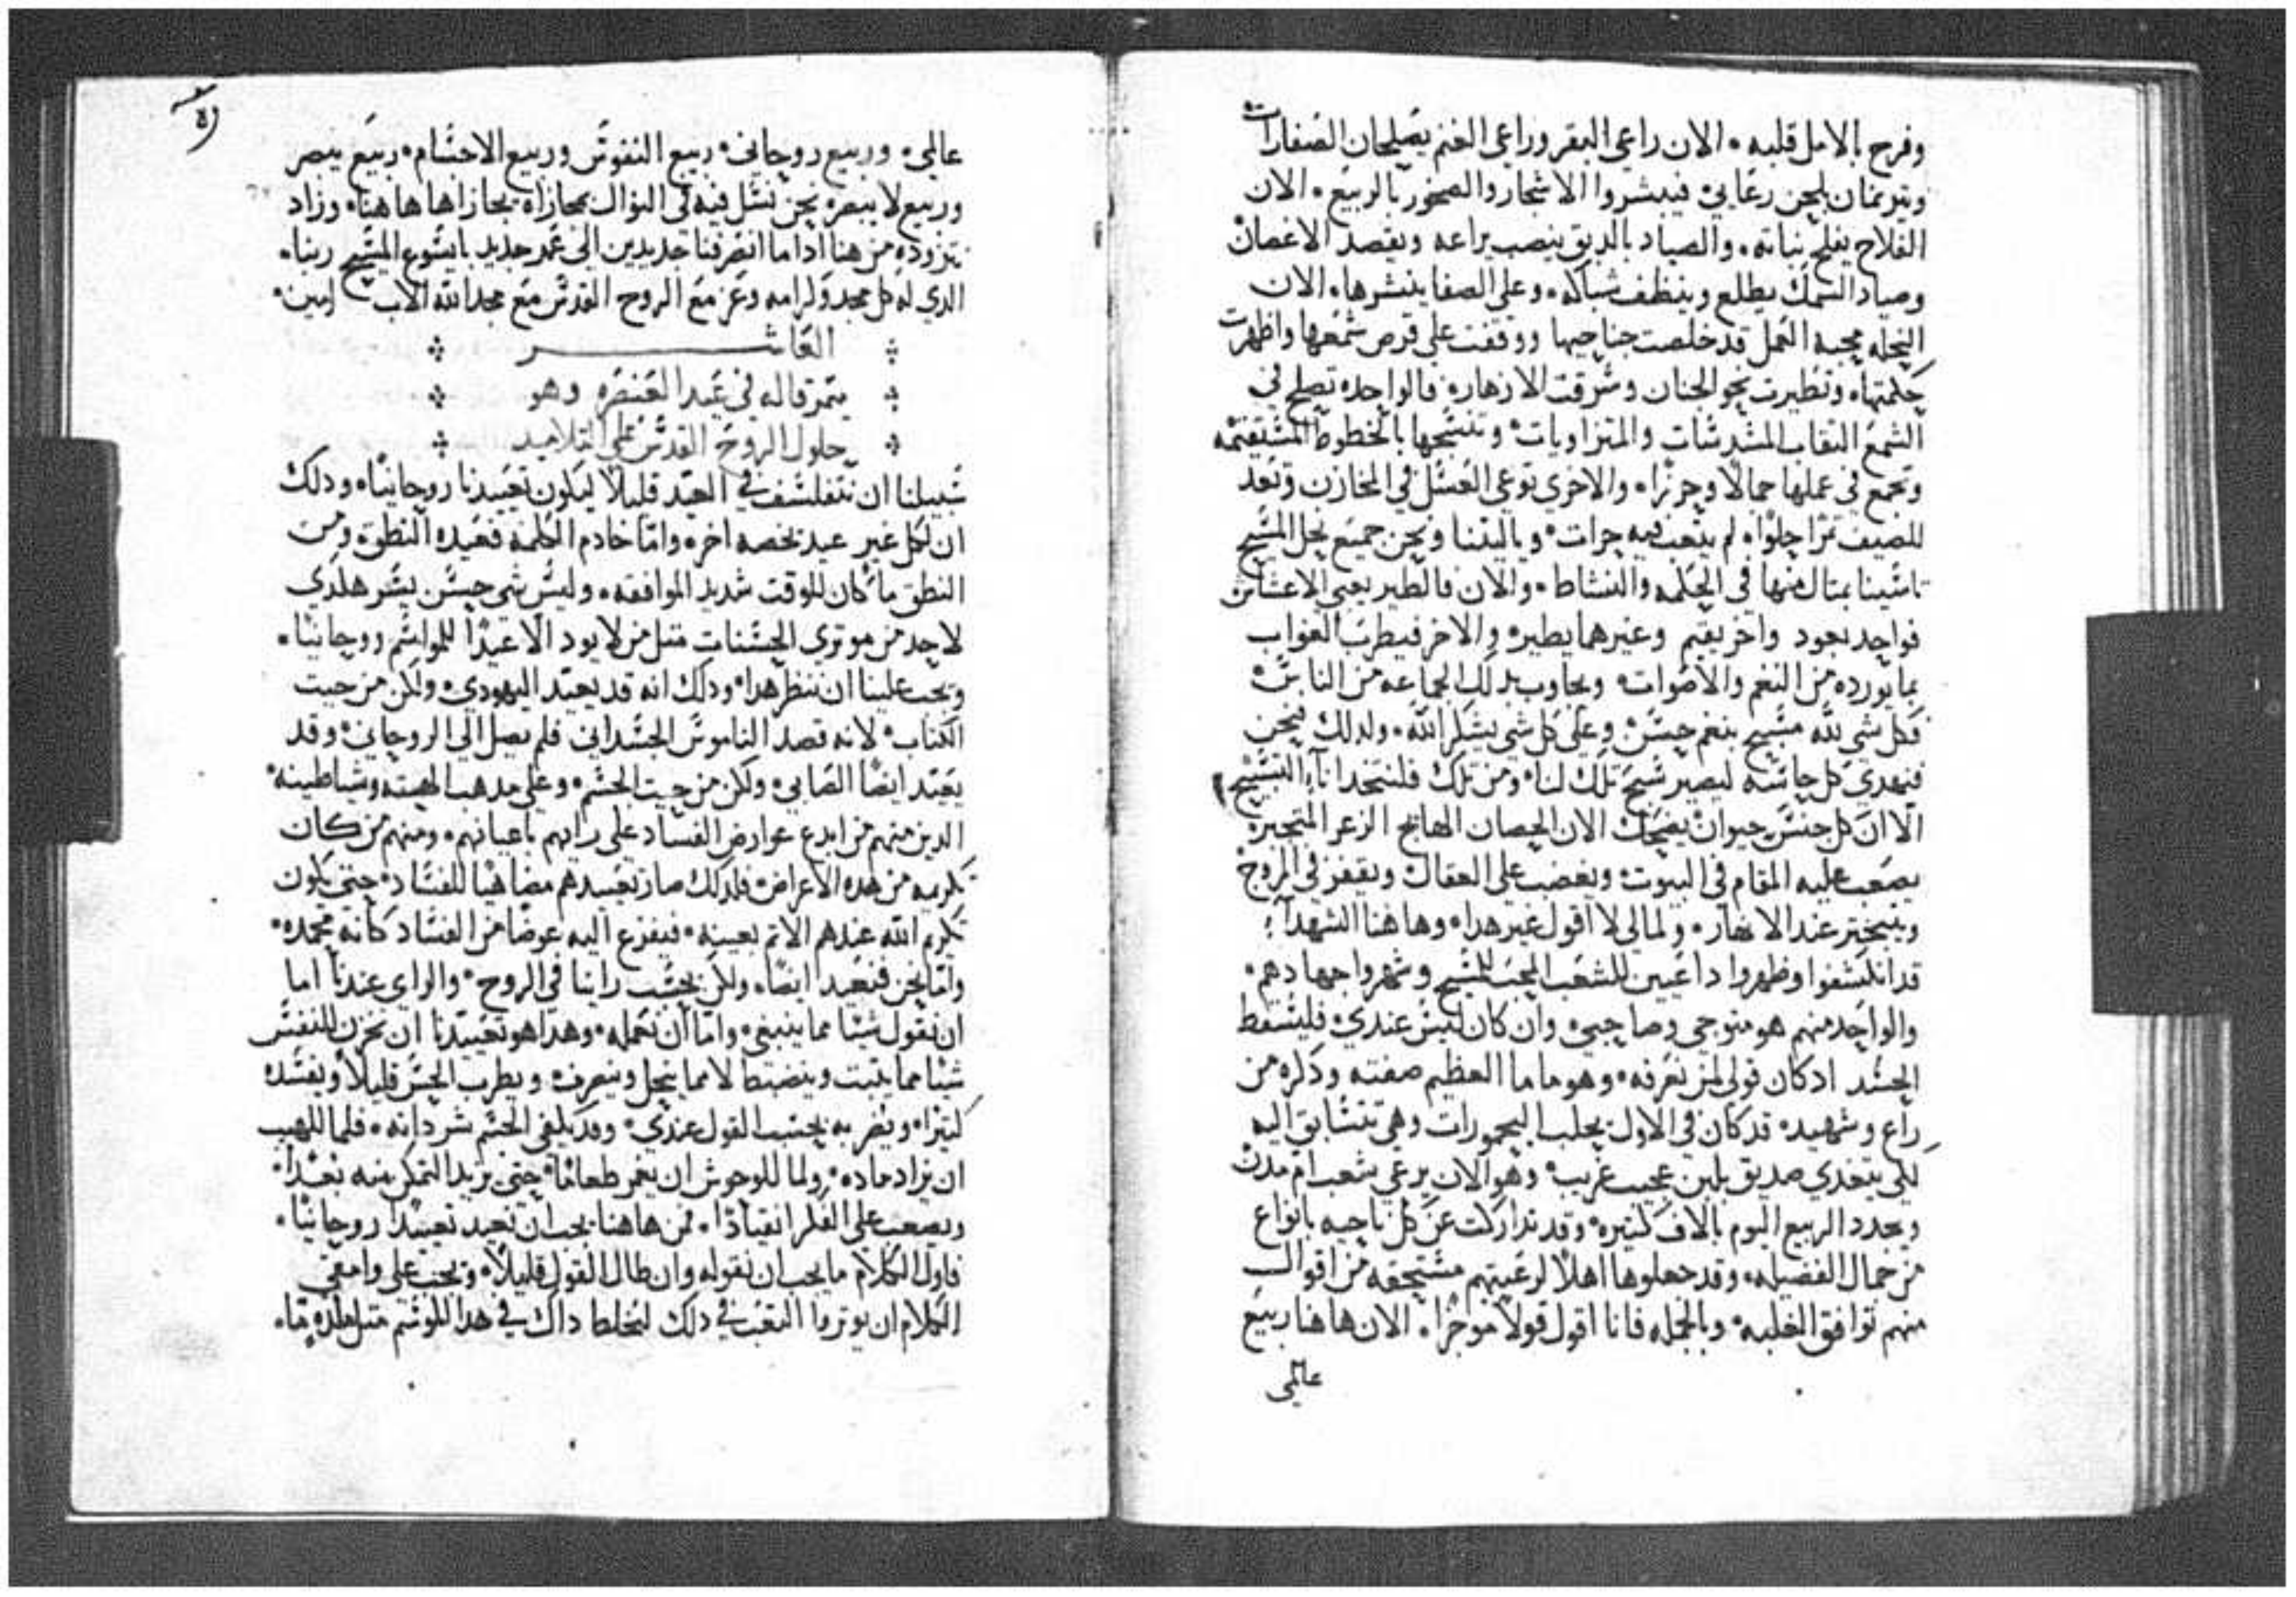 وفرح بالامل قلبه • الان راعي البقر وراعي الغنم يصلحان الصفارات
ويترنمان بلحن رعايي فيبشروا الاشجار والصخور بالربيع • الان
الفلاح يفلح نباته • والصياد بالدبق ينصب يراعه ويقصد الاغصان
وصياد السمك يطلع وينظف شباكه • وعلى الصفا ينشرها • الان
النحله محبة العمل قد خلصت جناحيها ووقفت على قرص شمعها واظهرت
حكمتها • وتطيرت نحو الجنان وسرقت الازهار • فالواحده تصلح في
الشمع النقاب المسدسات والمتزاويات • وتنسجها بالخطوط المستقيمه
وتجمع في عملها جمالا وحرزا • والاخري توعي العسل في المخازن وتعد
للصيف تمرا حلوا • لم يتعب فيه حرات • وياليتنا ونحن جميع نحل المسيح
تاسينا بمتال منها في الحكمه والنشاط • والان فالطير يعبي الاعشاش
فواحد يعود واخر يقيم وغيرهما يطير • والاخر فيطرب الغواب
بما يورده من النغم والاصوات • ويجاوب بدلك الجماعه من الناس •
فكل شي لله مسبح بنغم حسن وعلى كل شي يشكر الله • ولدلك نحن
فنهدي كل حاسه ليصير سبح تلك لنا • ومن تلك فلنتخد انا التسبيح
الا ان كل جنس حيوان يضحك الان الحصان الهايج الزعر المتحير •
يصعب عليه المقام في البيوت • ويغضب على العقال ويقفز في المروج
ويتبختر عند الانهار • ولمالي لا اقول غير هدا • وهاهنا الشهدا
قد انكشفوا وظهروا داعيين للشعب المحب للمسيح وشهروا جهادهم •
والواحد منهم هو متوجي وصاحبي • وان كان ليس عندي • فليسقط
الحسد ادكان قولي لمن نعرفه • وهو ماما العظيم صفته ودكره من
راع وشهيد • قد كان في الاول يحلب اليحمورات وهي تتسابق اليه
لكي يتغدي صديق بلبن عجيب غريب • وهو الان يرعي شعب ام مدن
ويجدد الربيع اليوم بالاف كتيره • وقد تداركت عن كل ناحيه بانواع
من جمال الفضيله • وقد جعلوها اهلا لرعيتهم مستحقه من اقوال
منهم توافق الغلبه • وبالجمله فانا اقول قولا موجزا • الان هاهنا ربيع
عالمي
عالمي • وربيع روحاني • ربيع النفوس وربيع الاجسام • ربيع يبصر
وربيع لا يبصر • نحن نسل فيه في النوال بمجازاة بجازاها هاهنا • وزاد
نتزوده من هنا ادا ما انصرفنا جديدين الى عمر جديد بايسوع المسيح ربنا •
الدي له كل مجد وكرامه وعز مع الروح القدس مع مجد الله الاب امين •
العاشر
ميمر قاله في عيد العنصره وهو
حلول الروح القدس على التلاميد
سبيلنا ان نتفلسف في العيد قليلا ليكون تعييدنا روحانيا • ودلك
ان لكل غير عيد يخصه اخر • واما خادم الكلمه فعيده النطق • ومن
النطق ما كان للوقت شديد الموافقه • وليس شي حسن يسر هكدي
لاحد من موتري الحسنات متل من لا يود الا عيدا للمواسم روحانيا •
ويجب علينا ان ننظر هدا • ودلك انه قد يعيد اليهودي • ولكن من حيت
الكتاب • لانه قصد الناموس الجسداني فلم يصل الى الروحاني • وقد
يعيد ايضا الصابي • ولكن من حيت الجسم • وعلى مدهب الهته وشياطينه •
الدين منهم من ابدع عوارض الفساد على رايهم باعيانهم • ومنهم من كان
تكريمه من هده الاعراض • فلدلك صار تعييدهم مضاهيا للفساد • حتى يكون
تكريم الله عندهم الاتم بعينه • فيفزع اليه عوضا من الفساد كانه محمده •
واما نحن فنعيد ايضا • ولكن بحسب راينا في الروح • والراي عندنا اما
ان نقول شيا مما ينبغي • واما ان نعمله • وهدا هو تعييدنا ان نخزن للنفس
شيا مما يتبت وينضبط لا مما ينحل وينصرف • ويطرب الحس قليلا ويفسد
كتيرا • ويضر به بحسب القول عندي • وقد يكفي الجسم شر داته • فلما للهيب
ان يزاد ماده • ولما للوحوش ان يغمر طعاما • حتى يزيد التمكن منه بعدا •
ويصعب على الفكر انقيادا • فمن هاهنا يجب ان نعيد تعييدا روحانيا •
فاول الكلام ما يجب ان نقوله وان طال القول قليلا • ويجب على وامقي
الكلام ان يوتروا التعب في دلك لنخلط داك في هدا الموسم متل ملده ما •